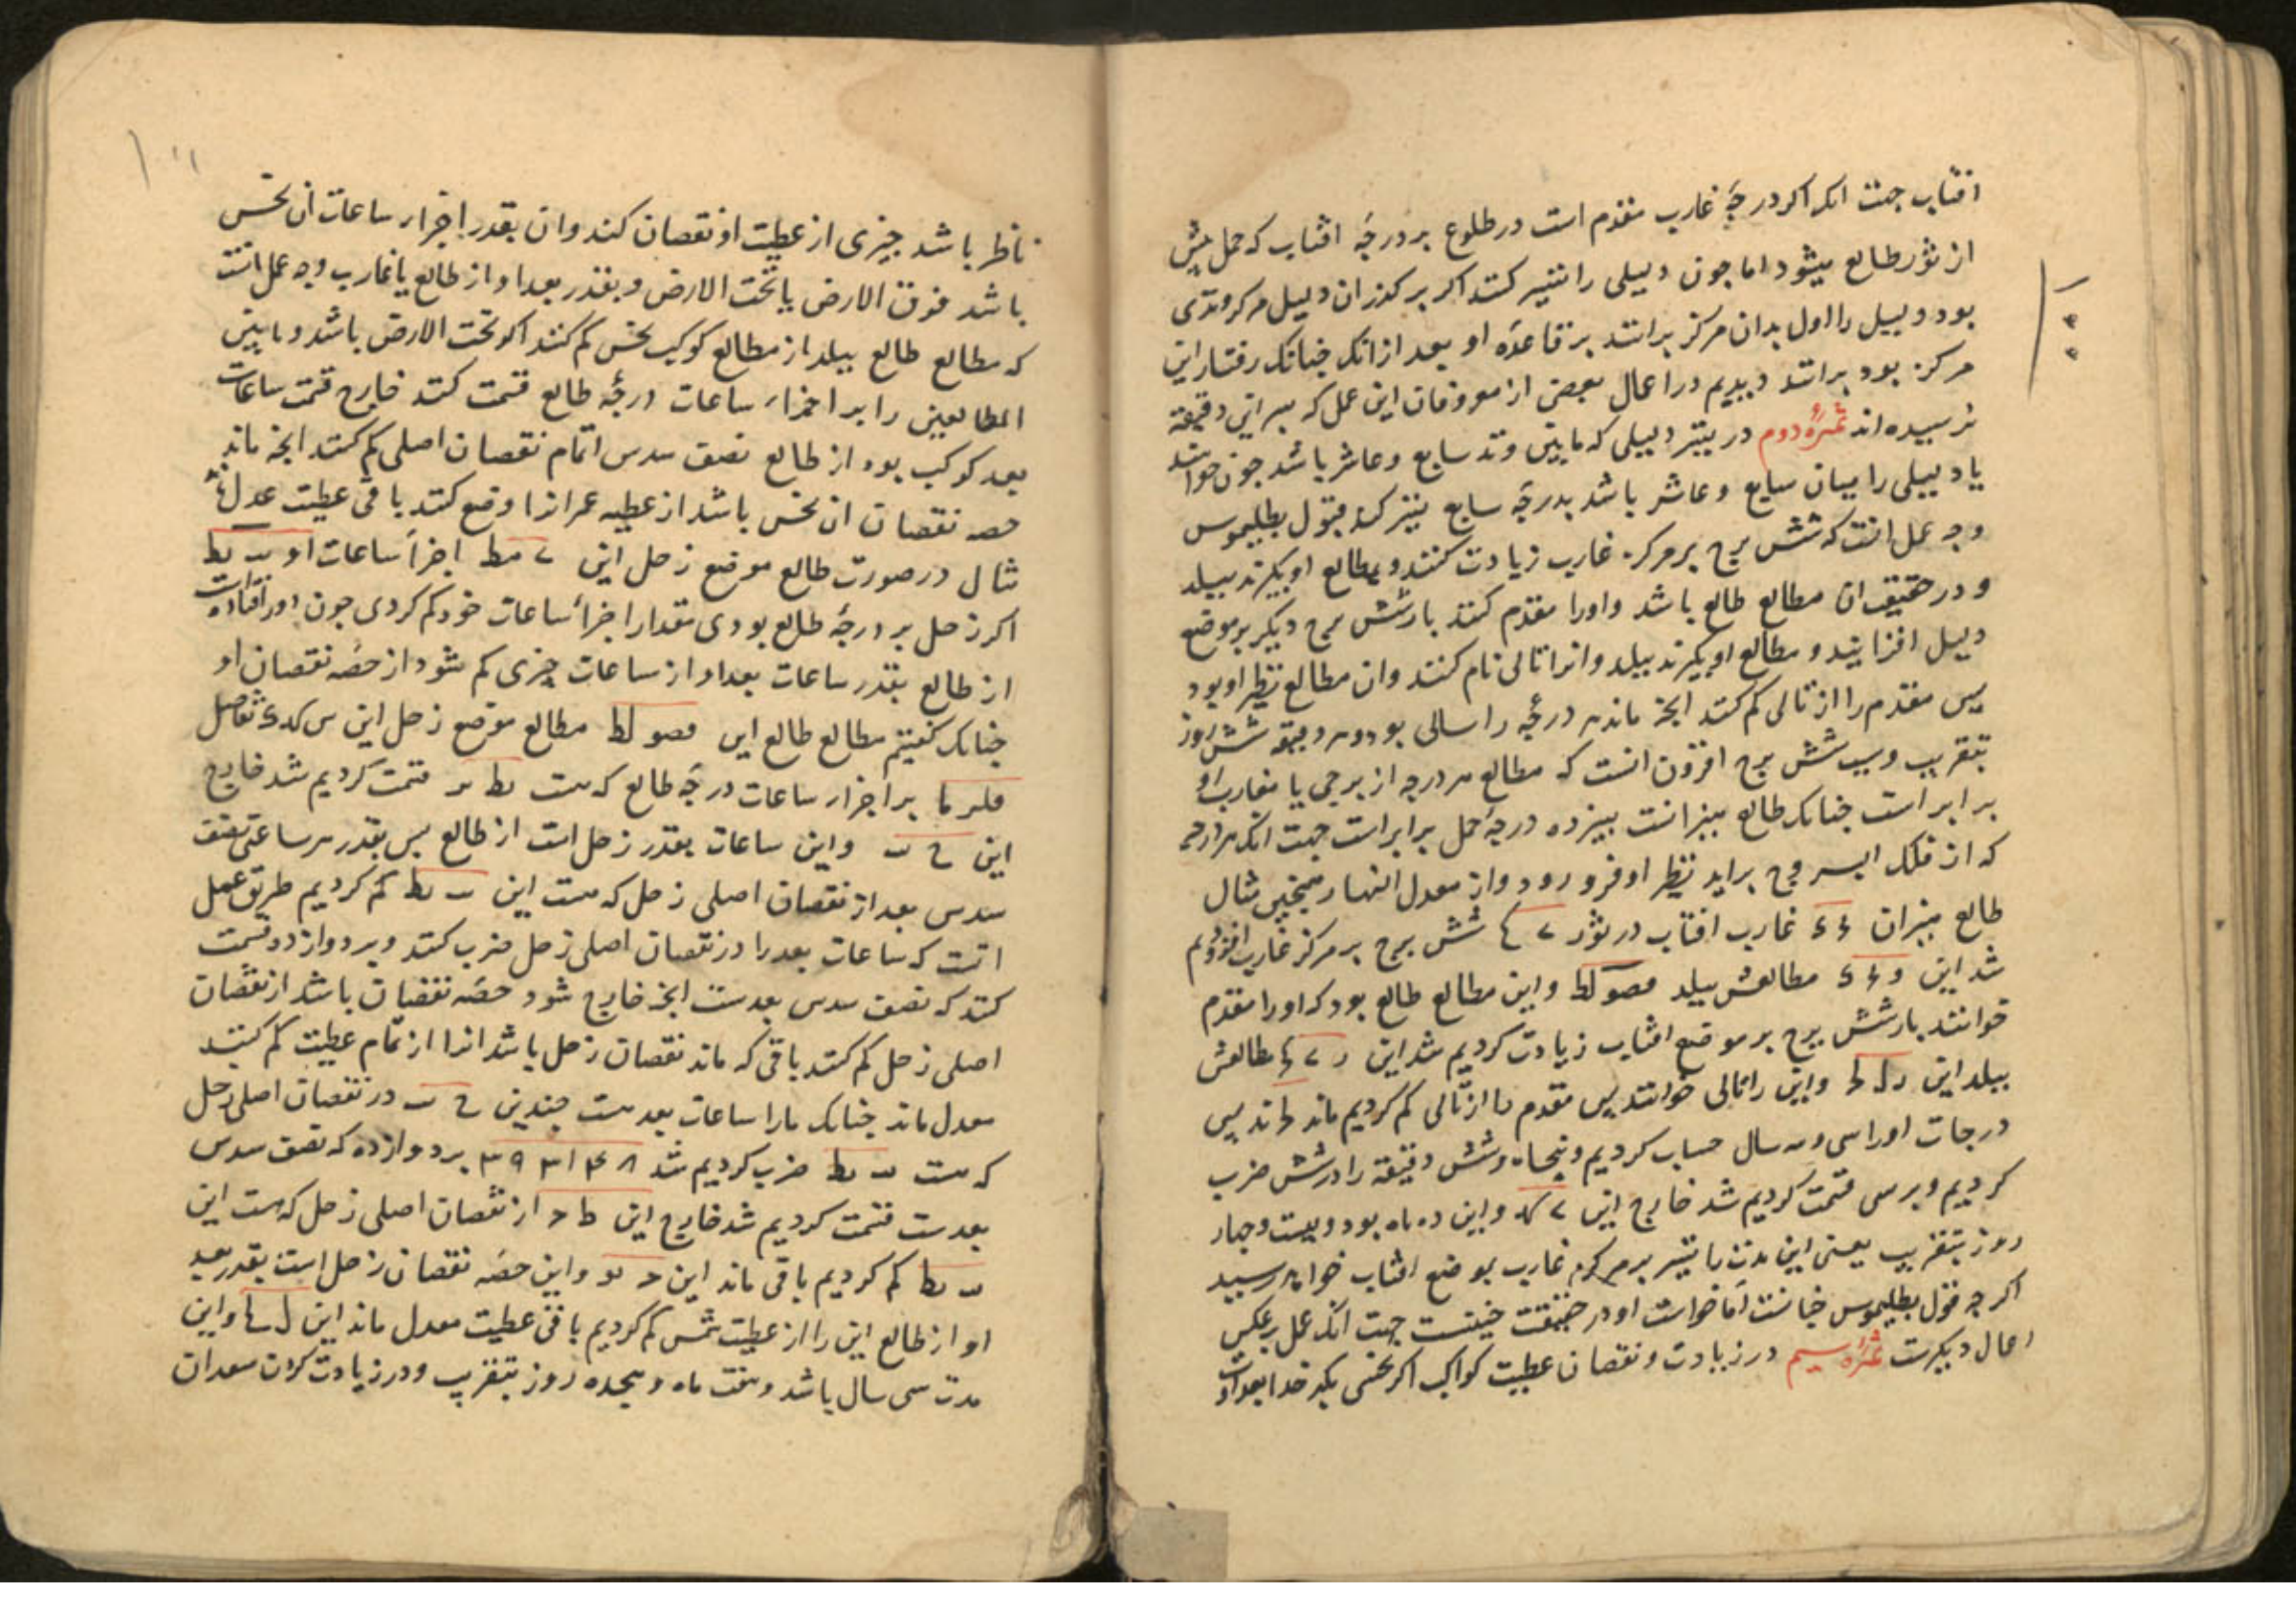 افتاب جهت انکه اکر درجهٔ غارب مقدم است در طلوع بر درجهٔ افتاب که حمل پیش
از ثور طالع میشود اما جون دلیلی را تسییر کنند اکر بر کذر ان دلیل مرکز وتدی
بود دلیل را اول بدان مرکز برانند بر قاعدهٔ او بعد از انک جنانک رفتار این
مرکز بود برانند و دیدیم در اعمال بعضی از معروفان این عمل که بسر این دقیقه
نرسیده اند ثمرهٔ دوم در تسییر دلیلی که مابین وتد سابع و عاشر باشد جون خواهند
یا دلیلی را میان سابع و عاشر باشد بدرجهٔ سابع تسییر کند بقول بطلیموس
وجه عمل انست که شش برج بر مرکز غارب زیادت کنند و مطالع او بکیرند ببلد
و در حقیقت ان مطالع طالع باشد و اورا مقدم کنند باز شش برج دیکر بر موضع
دلیل افزایند و مطالع او بکیرند ببلد و انرا تالی نام کنند و ان مطالع نظیر او بود
پس مقدم را از تالی کم کنند انجه ماند هر درجهٔ را سالی بود و هر دقیقه شش روز
بتقریب و سبب شش برج افزون انست که مطالع هر درجه از برجی با مغارب او
برابر است جنانک طالع میزانست بیزده درجهٔ حمل برابر است جهت انک هر درجه
که از فلک البروج براید نظیر او فرو رود و از معدل النهار همجنین مثال
طالع میزان غارب افتاب در ثور شش برج بر مرکز غارب افزودیم
شد این مطالعش ببلد قصو لط و این مطالع طالع بود که اورا مقدم
خوانند باز شش برج بر موضع افتاب زیادت کردیم شد این مطالعش
ببلد این و این را تالی خوانند پس مقدم را از تالی کم کردیم ماند پس
درجات اورا سی و سه سال حساب کردیم و پنجاه و شش دقیقه را در شش ضرب
کردیم و بر سی قسمت کردیم شد خارج این و این ده ماه بود و بیست و جهار
روز بتقریب یعنی این مدت را تسییر بر مرکز غارب بموضع افتاب خواهد رسید
اکرجه قول بطلیموس جنانست اما خواست او در حقیقت جنینست جهت انک عمل بر عکس
اعمال دیکرست ثمرهٔ سیم در زیادت و نقصان عطیت کواکب اکر نحسی بکدخدا بعداوت
ناظر باشد جیزی از عطیت او نقصان کند و ان بقدر اجزاء ساعات ان نحس
باشد فوق الارض یا تحت الارض و بقدر بعد او از طالع یا غارب وجه عمل انست
که مطالع طالع ببلد از مطالع کوکب نحس کم کنند اکر تحت الارض باشد و مابین
المطالعین را بر اجزاء ساعات درجهٔ طالع قسمت کنند خارج قسمت ساعات
بعد کوکب بود از طالع نصف سدس اتمام نقصان اصلی کم کنند انجه ماند
حصه نقصان ان نحس باشد از عطیه عمر انرا وضع کنند باقی عطیت عدل باشد
مثال در صورت طالع موضع زحل این اجزأ ساعات او
اکر زحل بر درجهٔ طالع بودی مقدار اجزأ ساعات خود کم کردی جون دور افتاده است
از طالع بقدر ساعات بعد او از ساعات جیزی کم شود از حصهٔ نقصان او
جنانک کفتیم مطالع طالع این قصو لط مطالع موضع زحل این تفاضل
بر اجزاء ساعات درجهٔ طالع که هست قسمت کردیم شد خارج
این و این ساعات بقدر زحل است از طالع پس بقدر هر ساعتی نصف
سدس بعد از نقصان اصلی زحل که هست این کم کردیم طریق عمل
انست که ساعات بعد را در نقصان اصلی زحل ضرب کنند و بر دوازده قسمت
کنند که نصف سدس بعدست انجه خارج شود حصهٔ نقصان باشد از نقصان
اصلی زحل کم کنند باقی که ماند نقصان زحل باشد انرا از تمام عطیت کم کنند
معدل ماند جنانک مارا ساعات بعد هست جندین در نقصان اصلی زحل
که هست ضرب کردیم شد بر دوازده که نصف سدس
بعدست قسمت کردیم شد خارج این از نقصان اصلی زحل که هست این
کم کردیم باقی ماند این و این حصهٔ نقصان زحل است بقدر بعد
او از طالع این را از عطیت شمس کم کردیم باقی عطیت معدل ماند این و این
مدت سی سال باشد و هفت ماه و هجده روز بتقریب و در زیادت کردن سعدان